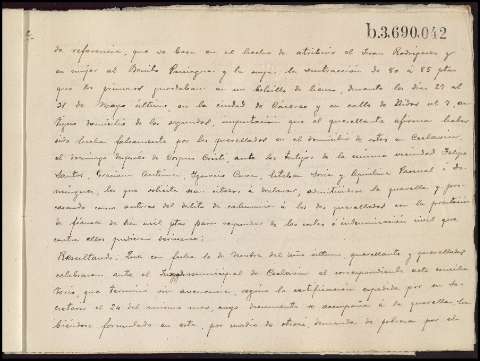 b.3.690.042
de referencia, que se basa en el hecho de atribuir el Juan Rodriguez y
su mujer al Benito Paniagua y la suya la sustracción de 80 a 85 ptas
que los primeros guardaban en un bolsillo de lienzo, durante los dias 27 al
31 de Mayo último, en la ciudad de Cáceres y en calle de Nidos nº 7, an-
tiguo domicilio de los segundos, imputación que el querellante afirma haber
sido hecha falsamente por los querellados en el domicilio de estos en Ceclavin,
el domingo despues de Corpus Cristi, ante los testigos de la misma vecindad Felipe
Santos, Graciano Antúnez, Ignacio Cava, Esteban Soria y Aquilina Pascual
minguez, los que solicita sean citados á declarar, admitiendose la querella y pro-
cesando como autores del delito de calumnia á los dos querellados con la prestación
de fianza de cien mil ptas para responder de las costas é indemnización civil que
contra ellos pudieran decretarse;
Resultando: Que con fecha 16 de del año último, querellante y querellados
celebraron ante el Juzgado municipal de Ceclavin el correspondiente acto concilia-
torio, que terminó sin avenencia, según la certificación expedida por su Se-
cretario el 24 del mismo mes, cuyo documento se acompaña á la querella ha-
biendose formulado en esta, por medio de otrosí, demanda de pobreza por el